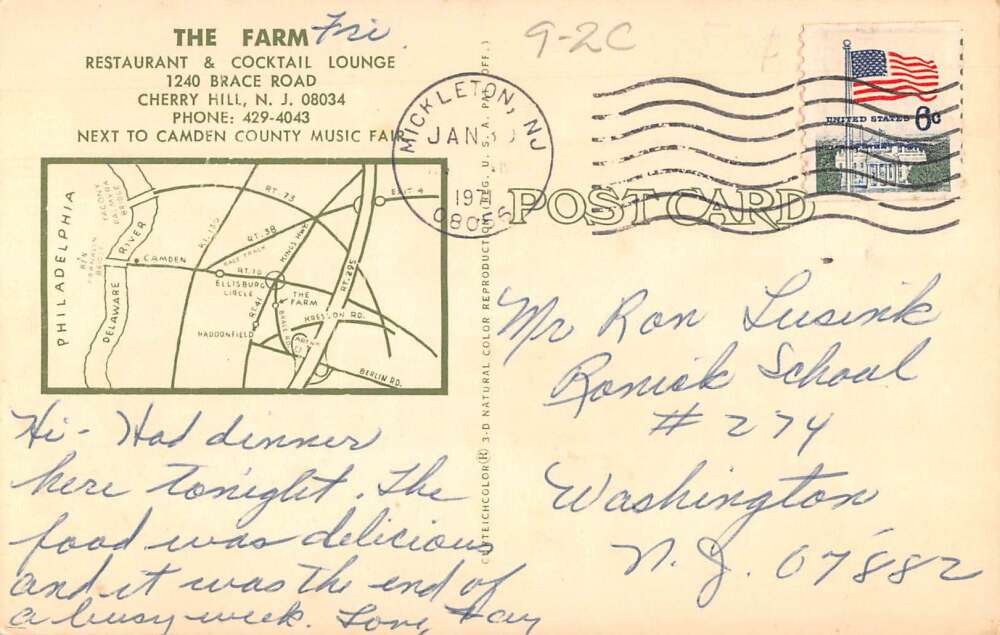 THE FARM Fri
RESTAURANT & COCKTAIL LOUNGE
1240 BRACE ROAD
CHERRY HILL, N. J. 08034
PHONE: 429-4043
NEXT TO CAMDEN COUNTY MUSIC FAIR
9-2C
MICKLETON, NJ
JAN 30
197
UNITED STATES 6c
POST CARD
PHILADELPHIA
TACONY PALMYRA BRIDGE
BEN FRANKLIN BRIDGE
DELAWARE RIVER
CAMDEN
RT. 130
RT. 73
RT. 38
RACE TRACK
KINGS HWY
EXIT 4
RT. 295
RT. 70
ELLISBURG CIRCLE
THE FARM
RT. 41
BRACE RD.
KRESSON RD.
HADDONFIELD
BERLIN RD.
CURTEICHCOLOR® 3-D NATURAL COLOR REPRODUCTION (REG. U. S. A. PAT. OFF.)
Hi - Had dinner
here tonight. The
food was delicious
and it was the end of
a busy week. Love,
Mr Ron Lusink
School
# 274
Washington
N.J. 07882